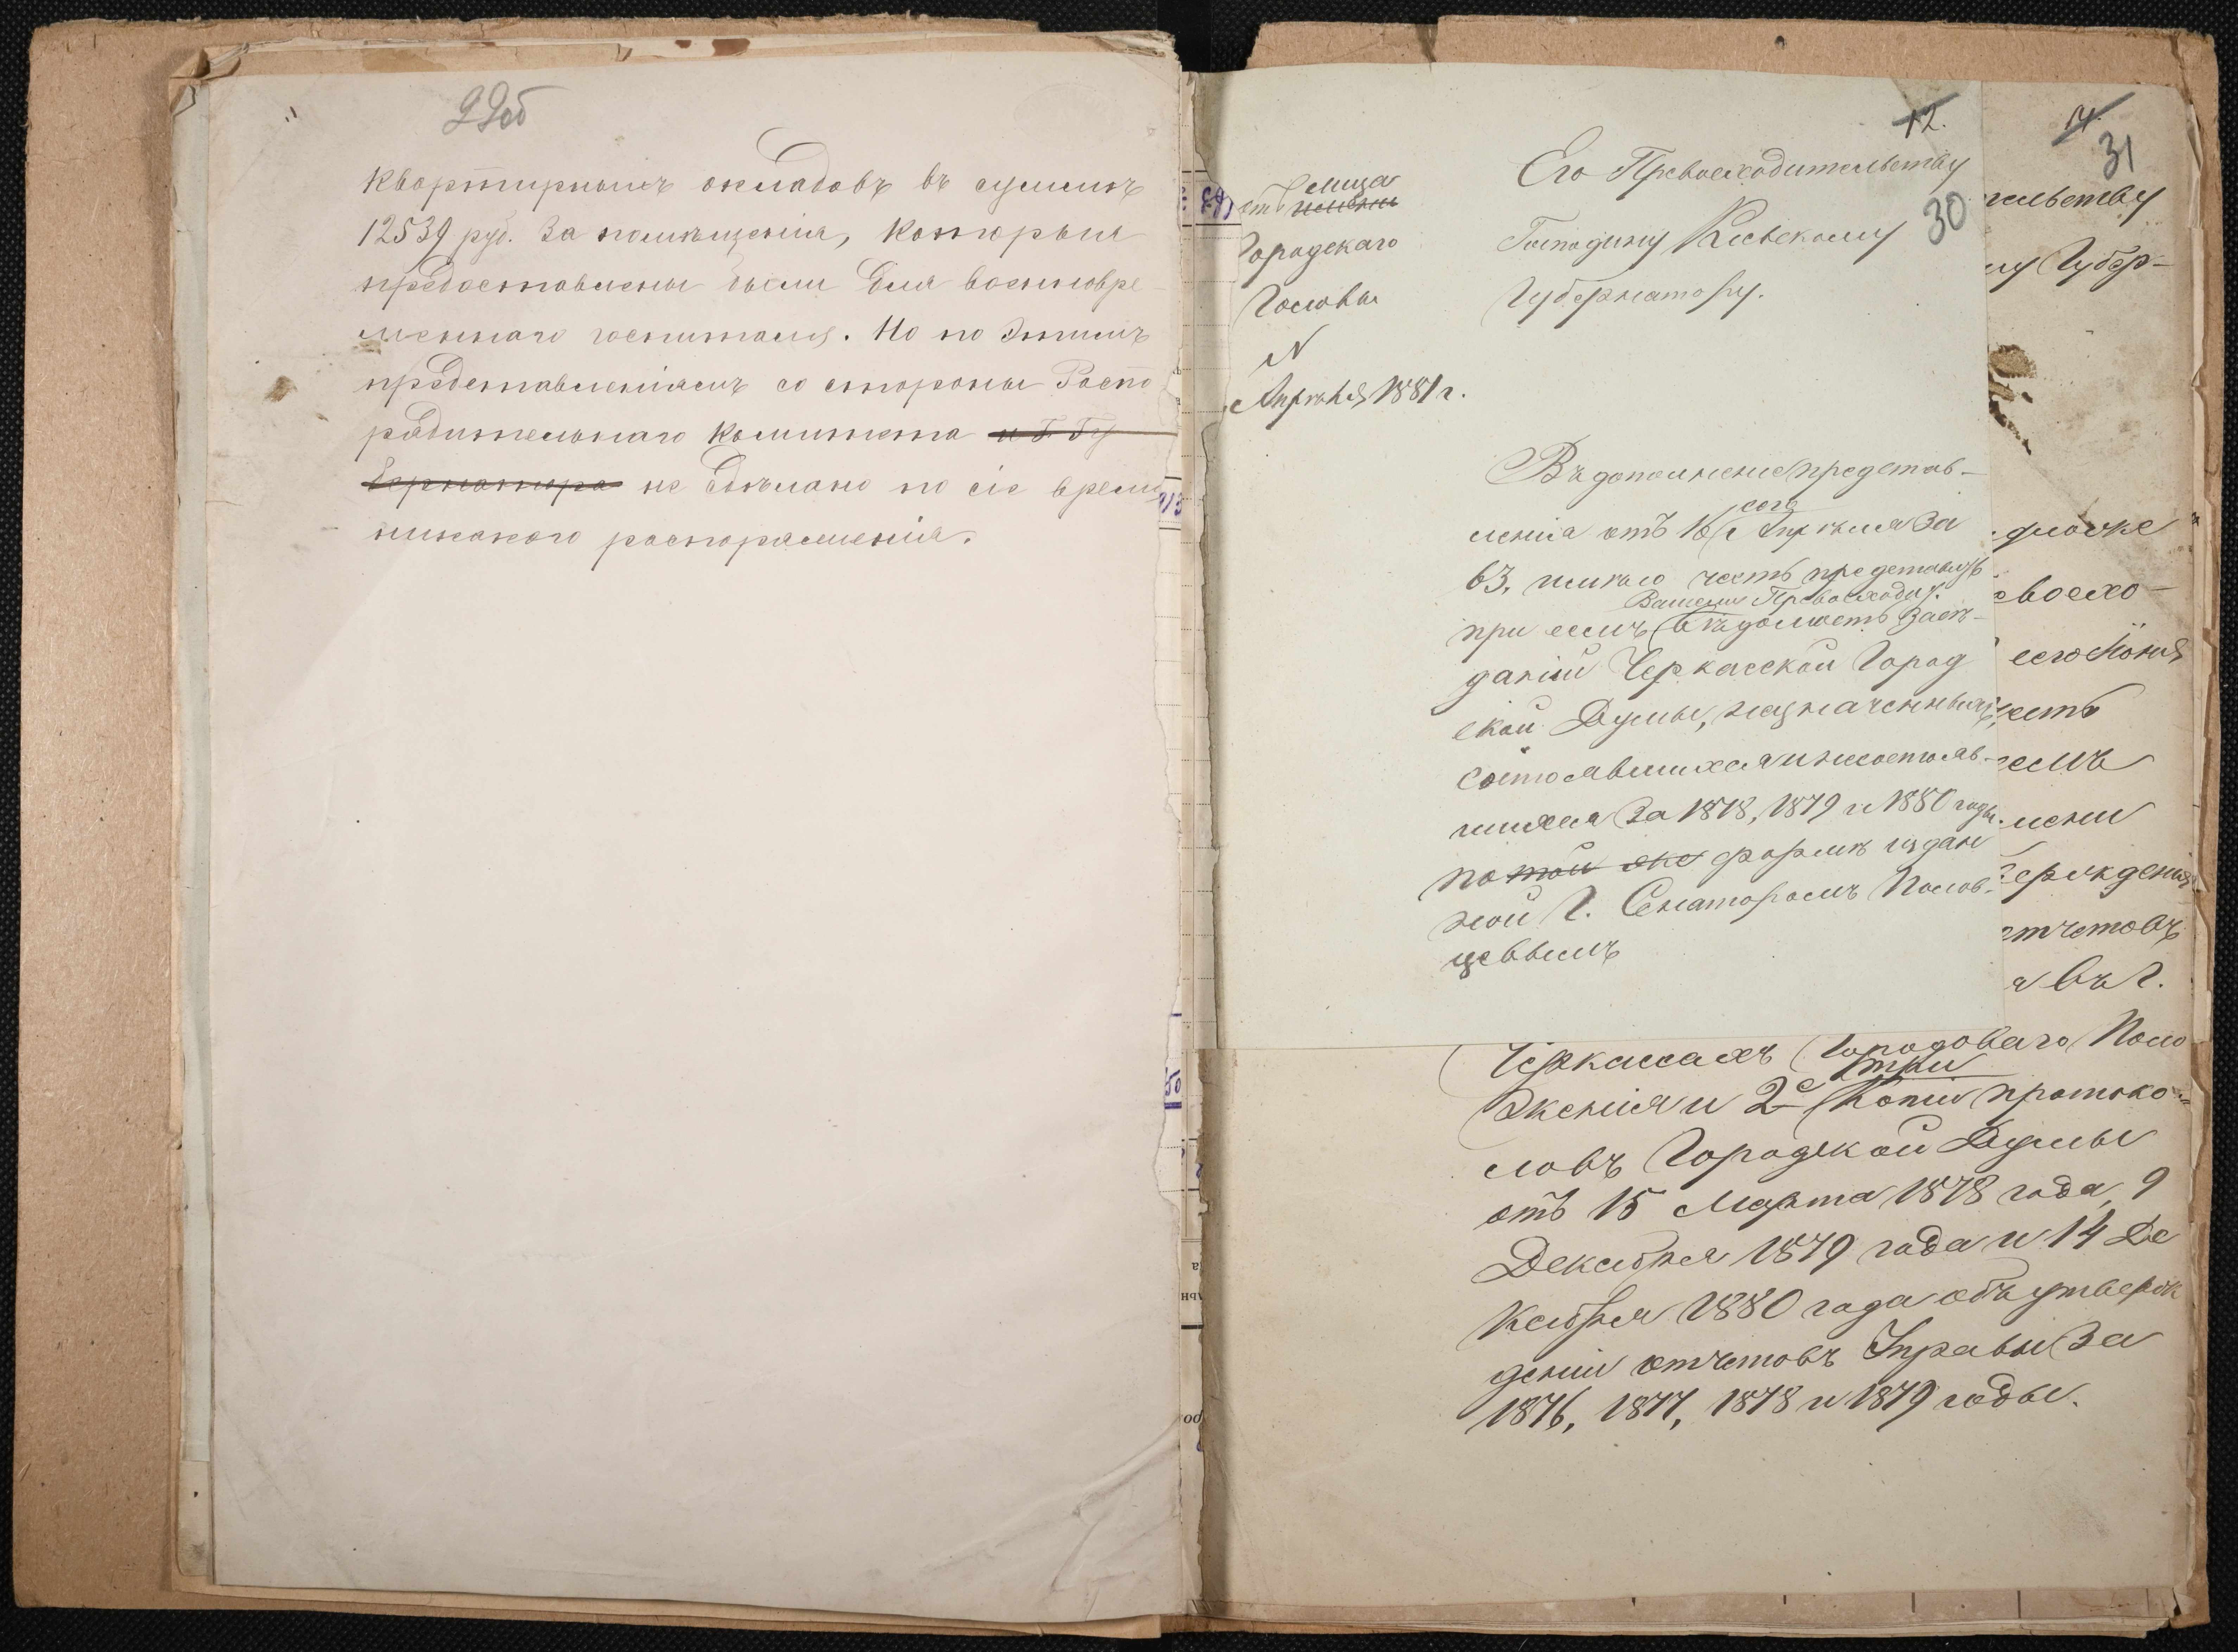 29об
квартирныхъ окладовъ въ суммѣ
12539 руб. За помѣщенія, которыя
предоставлены были для военновре
меннаго госпиталя. Но по этимъ
представленіямъ со стороны Распо
рядительнаго Комитета и Г. Гу
бернатора не сдѣлано по сіе время
никакого распоряженія.
12.
30
отъ лица
Городскаго
Головы
N
Апрѣля 1881 г.
Его Превосходительству
Господину Кіевскому
Губернатору.
Въ дополненіе представ-
сего
ленія отъ 16 Апрѣля за
63, имѣю честь представить
Вашему Превосходит.
при семъ вѣдомость засѣ-
даній Черкасской Город
ской Думы, назначенныхъ,
состоявшихся и несостояв-
шихся за 1878, 1879 и 1880 годы
по той же формѣ издан
ной Г. Сенаторомъ Полов-
цевымъ
14.
31
тельству
му Губер-
восхо-
честь
семъ
вержденія
отчетовъ
въ г.
Черкассахъ Городоваго Поло
три
женія и 2е Копіи протоко-
ловъ Городской Думы
отъ 15 Марта 1878 года, 9
Декабря 1879 года и 14 Де
кабря 1880 года объ утверж
деніи отчетовъ Управы за
1876, 1877, 1878 и 1879 годы.